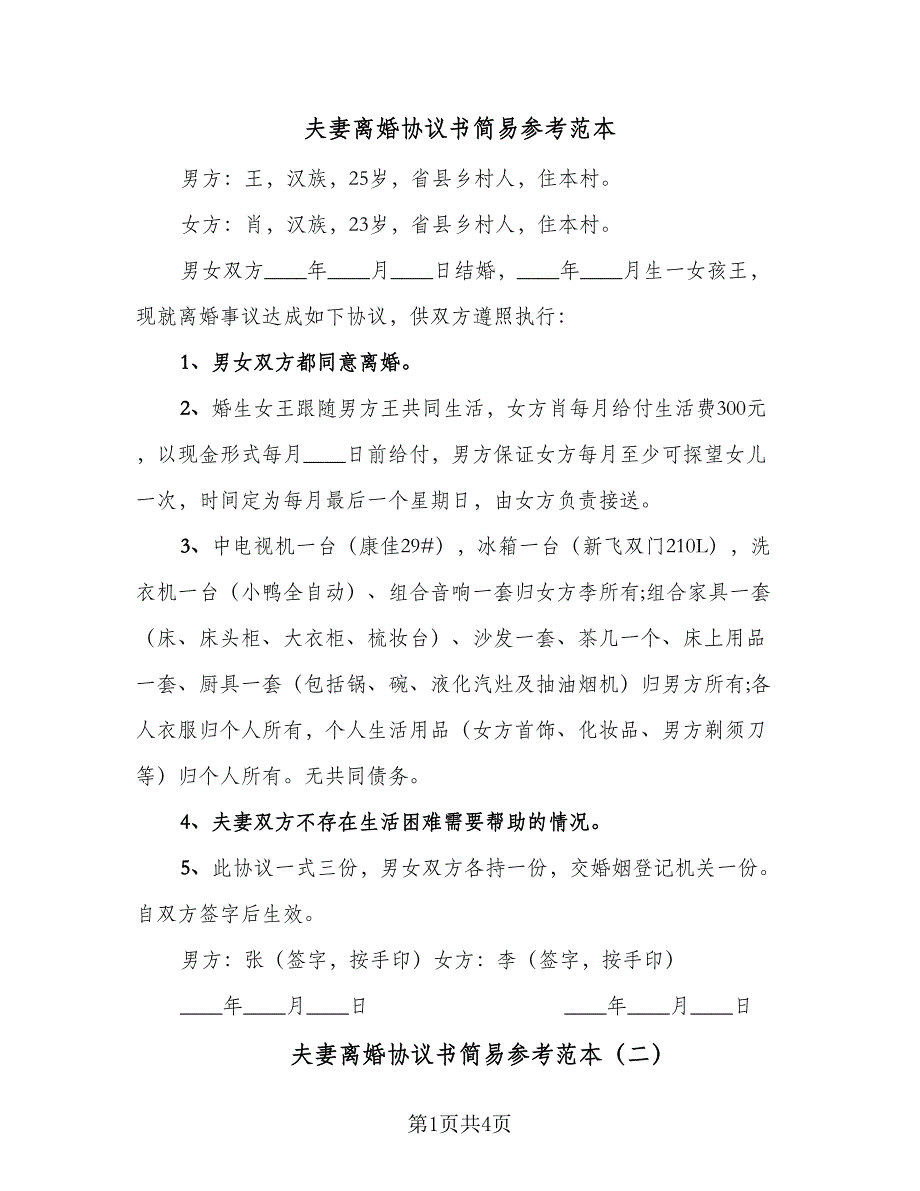 夫妻离婚协议书简易参考范本
男方：王，汉族，25岁，省县乡村人，住本村。
女方：肖，汉族，23岁，省县乡村人，住本村。
男女双方____年____月____日结婚，____年____月生一女孩王，
现就离婚事议达成如下协议，供双方遵照执行：
1、男女双方都同意离婚。
2、婚生女王跟随男方王共同生活，女方肖每月给付生活费300元
，以现金形式每月____日前给付，男方保证女方每月至少可探望女儿
一次，时间定为每月最后一个星期日，由女方负责接送。
3、中电视机一台（康佳29#），冰箱一台（新飞双门210L），洗
衣机一台（小鸭全自动）、组合音响一套归女方李所有;组合家具一套
（床、床头柜、大衣柜、梳妆台）、沙发一套、茶几一个、床上用品
一套、厨具一套（包括锅、碗、液化汽灶及抽油烟机）归男方所有;各
人衣服归个人所有，个人生活用品（女方首饰、化妆品、男方剃须刀
等）归个人所有。无共同债务。
4、夫妻双方不存在生活困难需要帮助的情况。
5、此协议一式三份，男女双方各持一份，交婚姻登记机关一份。
自双方签字后生效。
男方：张（签字，按手印）女方：李（签字，按手印）
____年____月____日 ____年____月____日
夫妻离婚协议书简易参考范本（二）
第1页共4页